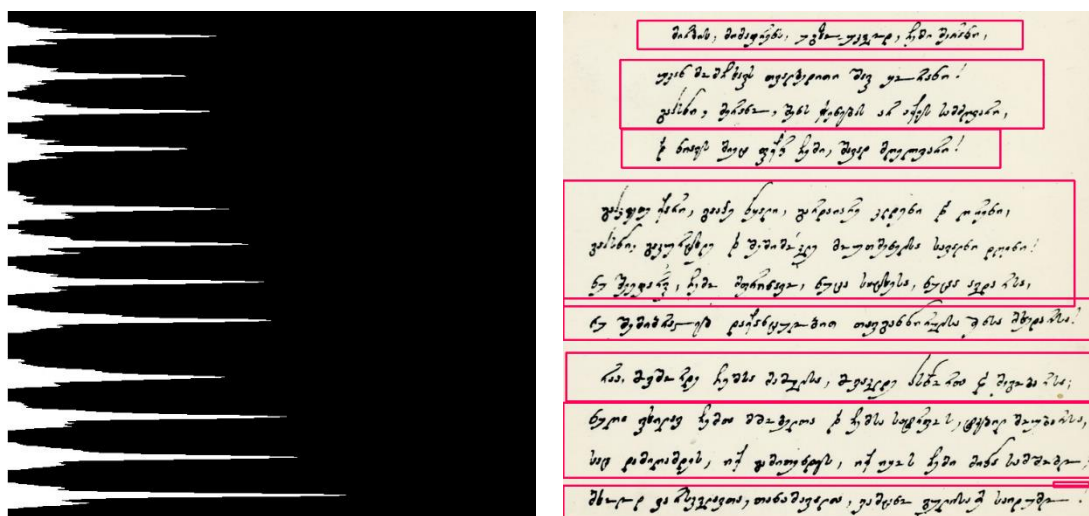 მირბის, მიმაფრენს, უგზო უკვლოდ, ჩემი მერანი,
უკან მომჩხავს თვალბედითი შავი ყორანი!
გასწი, მერანო, შენს ჭენებას არ აქვს სამძღვარი,
და ნიავს მიეც ფიქრი ჩემი, შავად მღელვარი!
გაკვეთე ქარი, გააპე წყალი, გარდაიარე კლდენი და ღრენი,
გასწი, გაკურცხლე და შემიმოკლე მოუთმენელსა სავალნი დღენი!
ნუ შეეფარვი, ჩემო მფრინავო, ნუცა სიცხესა, ნუცა ავდარსა,
ნუ შემიბრალებ დაქანცულობით თავგანწირულსა შენსა მხედარსა!
რაა, მოვშორდე ჩემსა მამულსა, მოვაკლდე სწორთა და მეგობარსა;
ნუღა ვიხილავ ჩემთა მშობელთა და ჩემსა სატრფოს, ტკბილ მოუბარსა,
სად დამიღამდეს, იქ გამითენდეს, იქ იყოს ჩემი მიწა სამშობლო;
მხოლოდ ვარსკვლავთა, თანამავალთა, ვამცნო გულისა მე საიდუმლო.